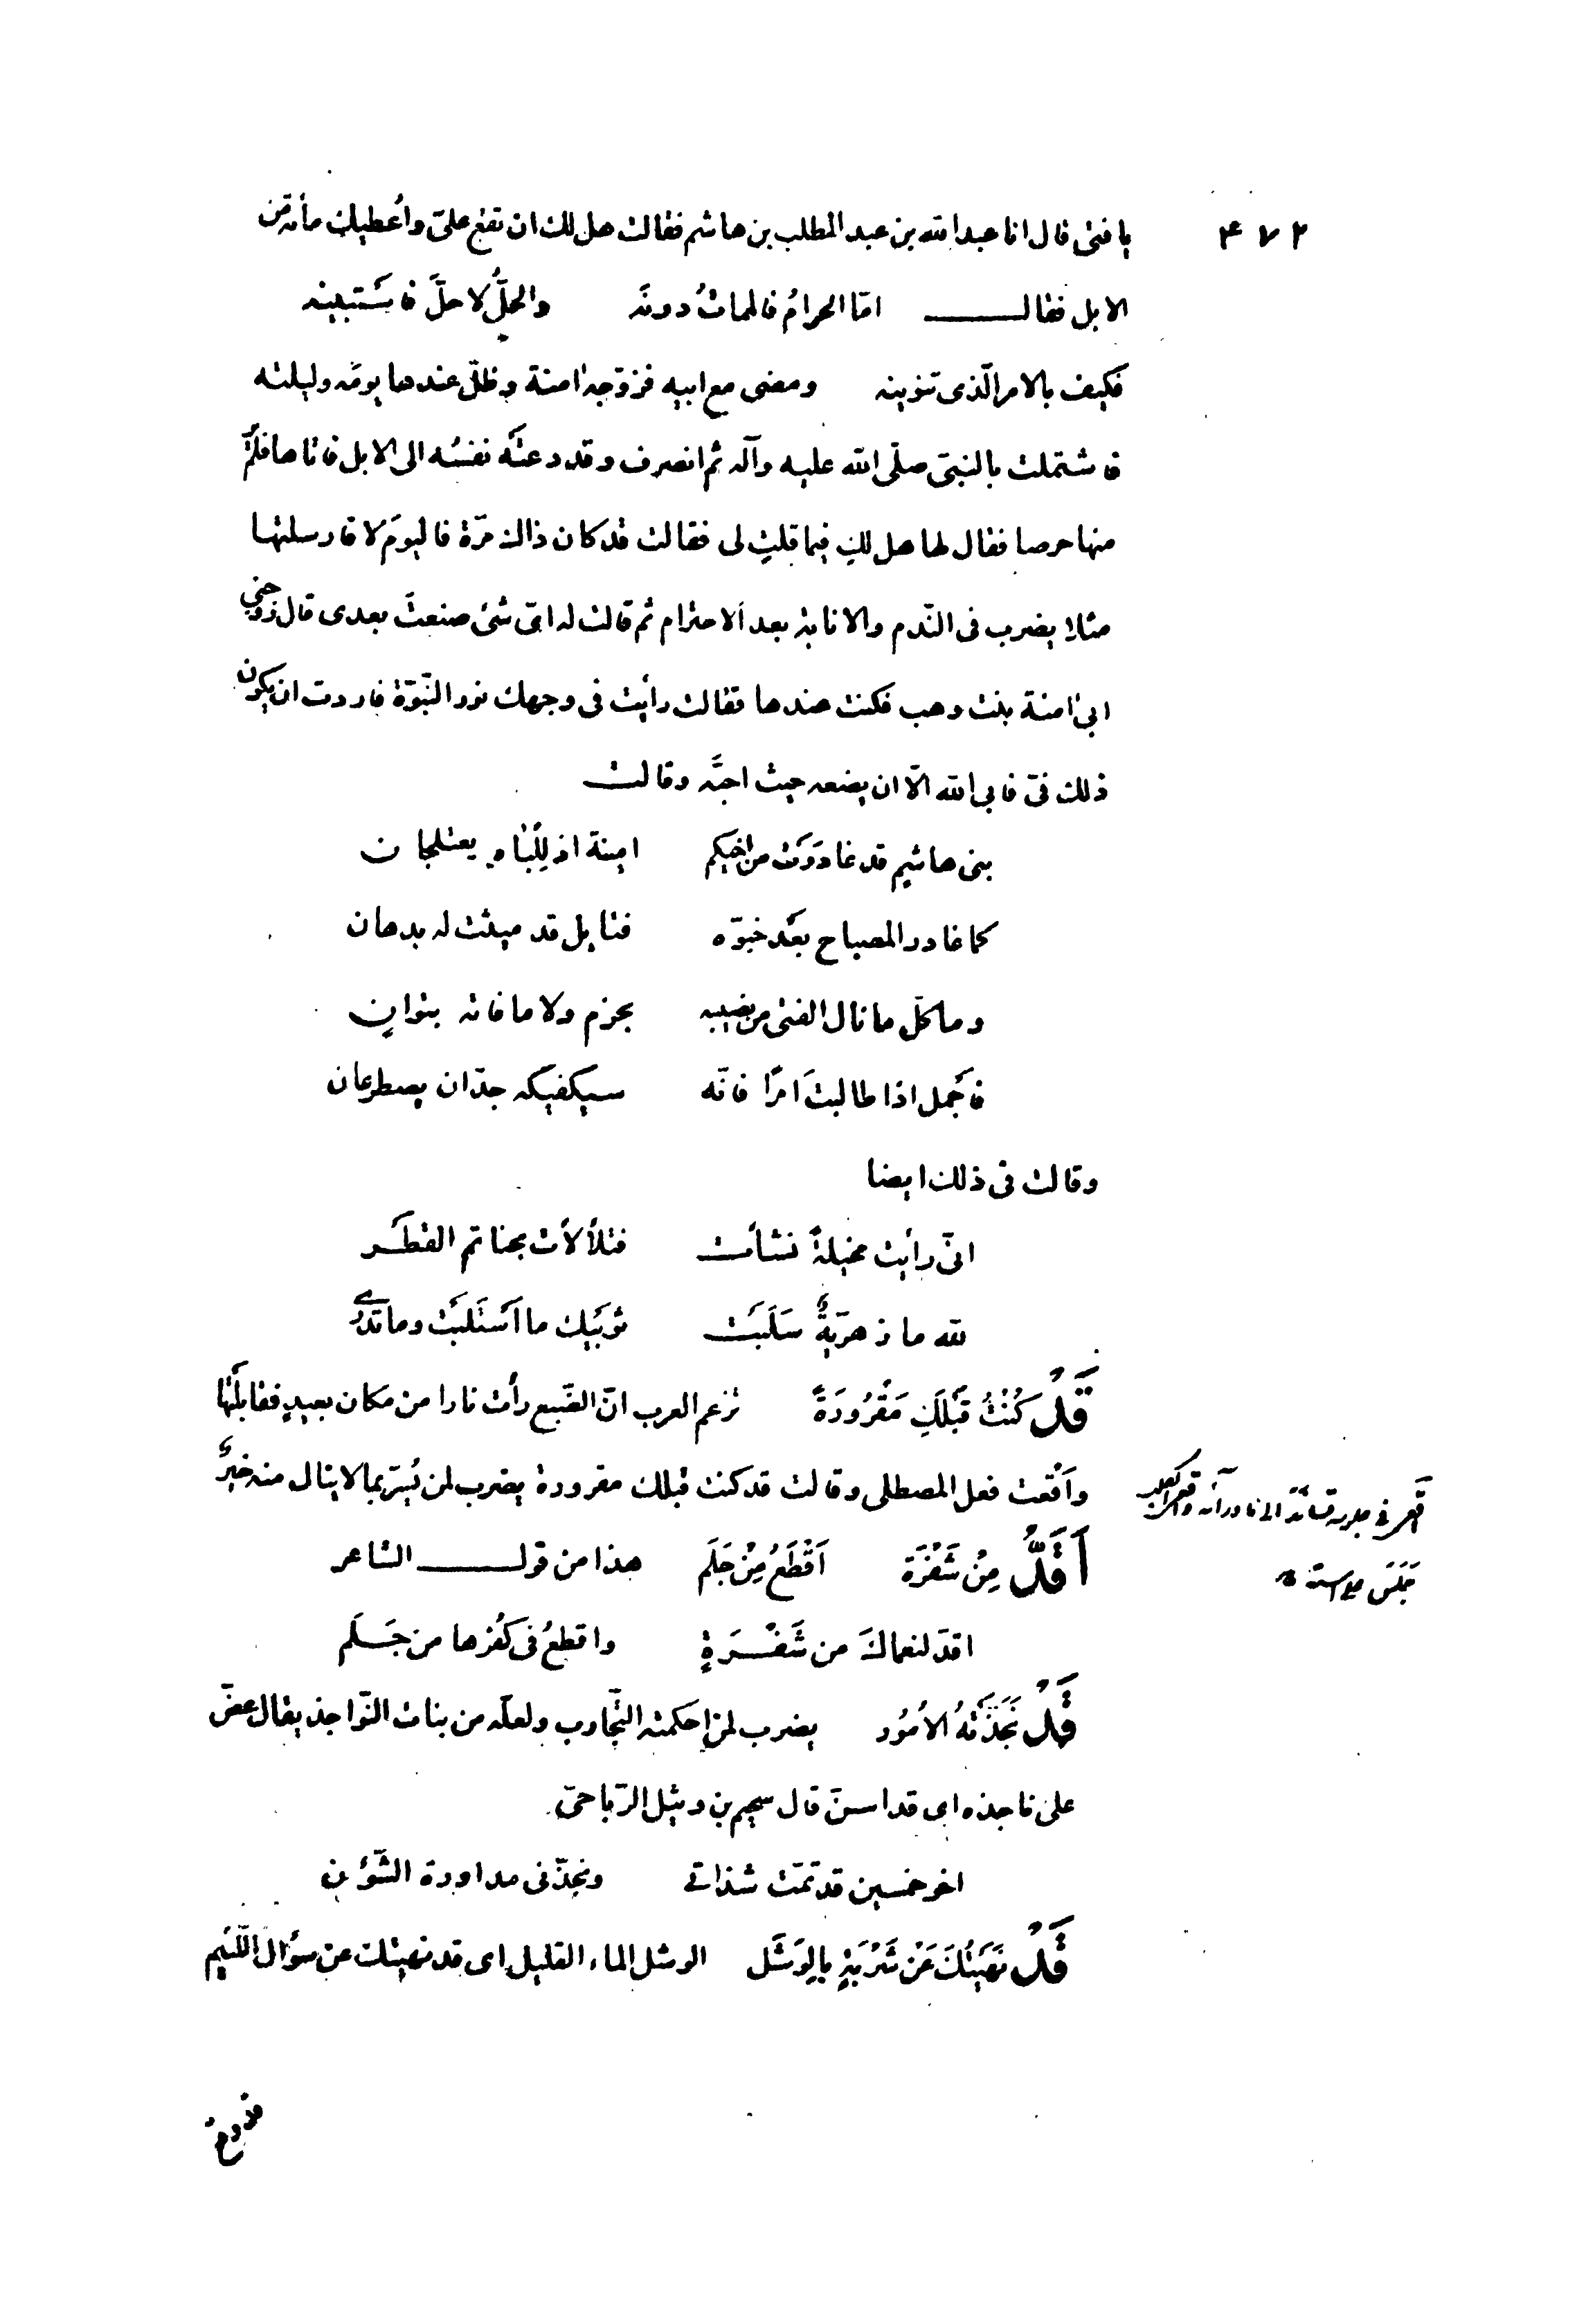 ٤٧٢
يا فتى قال انا عبد الله بن عبد المطلب بن هاشم فقالت هل لك ان تقع علىّ وأعطيك مأة من
الابل فقالــــ امّا الحرامُ فالمماتُ دونَه والحلُّ لا حلَّ فاَستبينه
فكيف بالامر الّذى تنوينه ومضى مع ابيه فزوّجه امنة وظلّ عندها يومَه وليلته
فاشتملت بالنبىّ صلّى الله عليه وآله ثم انصرف وقد دعتْه نفسُه الى الابل فاتاها فلم يَرَ
منها حرصا فقال لها هل لكِ فيما قلتِ لى فقالت قد كان ذاك مرّة فاليومَ لا فارسلتها
مثلا يضرب فى النّدم والانابة بعد الاحترام ثم قالت له اىّ شئ صنعتَ بعدى قال زوّجنى
ابى امنة بنت وهب فكنت عندها فقالت رأيت فى وجهك نور النّبوّة فاردت ان يكون
ذلك فىّ فابى الله الّا ان يضعه حيث احبَّه وقالت
بنى هاشمٍ قد غادَرَت من اخيكم امينة اذ للباهِ يعتلجان
كما غادر المصباح بعْد خبوّه فتايل قد ميثت له بدهان
وما كلّ ما نال الفتى من نصيبه بحزم ولا ما فاته بتوانٍ
فاَجمل اذا طالبتَ امرًا فانّه سيكفيكه جدّان يصطرعان
وقالت فى ذلك ايضا
انّى رأيت مخيلةً نشأت فتلألأت بحناتم القطْر
لله ما زهريّةٌ سَلَبَت ثوبَيْك ما اَسْتَلَبَت وما تدرى
قَدْ كُنْتُ قَبْلَكِ مَقْرُورَةً تزعم العرب انّ الضّبع رأت نارا من مكان بعيدٍ فقابلَتْها
واَقْعت فعل المصطلى وقالت قد كنت قبلك مقرورة يضرب لمن يُسَرّ بما لا ينال منه خيرٌ
اقعى فى جلوسه تساند الى ما وراءه واقعى الكلب
جَلَسَ على استه
أَقَدُّ مِنْ شَفْرَة اَقْطَعُ مِنْ جَلَم هذا من قولــــ الشاعر
اقدّ لنعماكَ من شَفْرَةٍ واقطعُ فى كُفْرها من جَلَم
قَدْ نَجَّذَتْهُ الاُمُور يضرب لمن احكمته التّجارب ولعلّه من بنات النّواجذ يقال عضّ
على ناجذه اى قد اسنّ قال سحيم بن وثيل الرّياحىّ
اخو خمسين قد تمّت شذاتى ونجّذنى مداورة الشّؤن
قَدْ نَهَيْتُكَ عَنْ شَرْبَةٍ بِالوَشَل الوشل الماء القليل اى قد نهيتك عن سؤال اللئيم